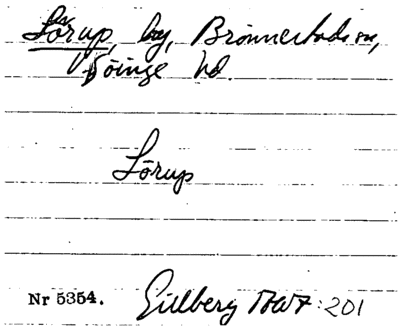 Lörup, by, Brönnestads sn,
V Göinge hd.
Lörup
Nr 5354. Gillberg 1767: 201